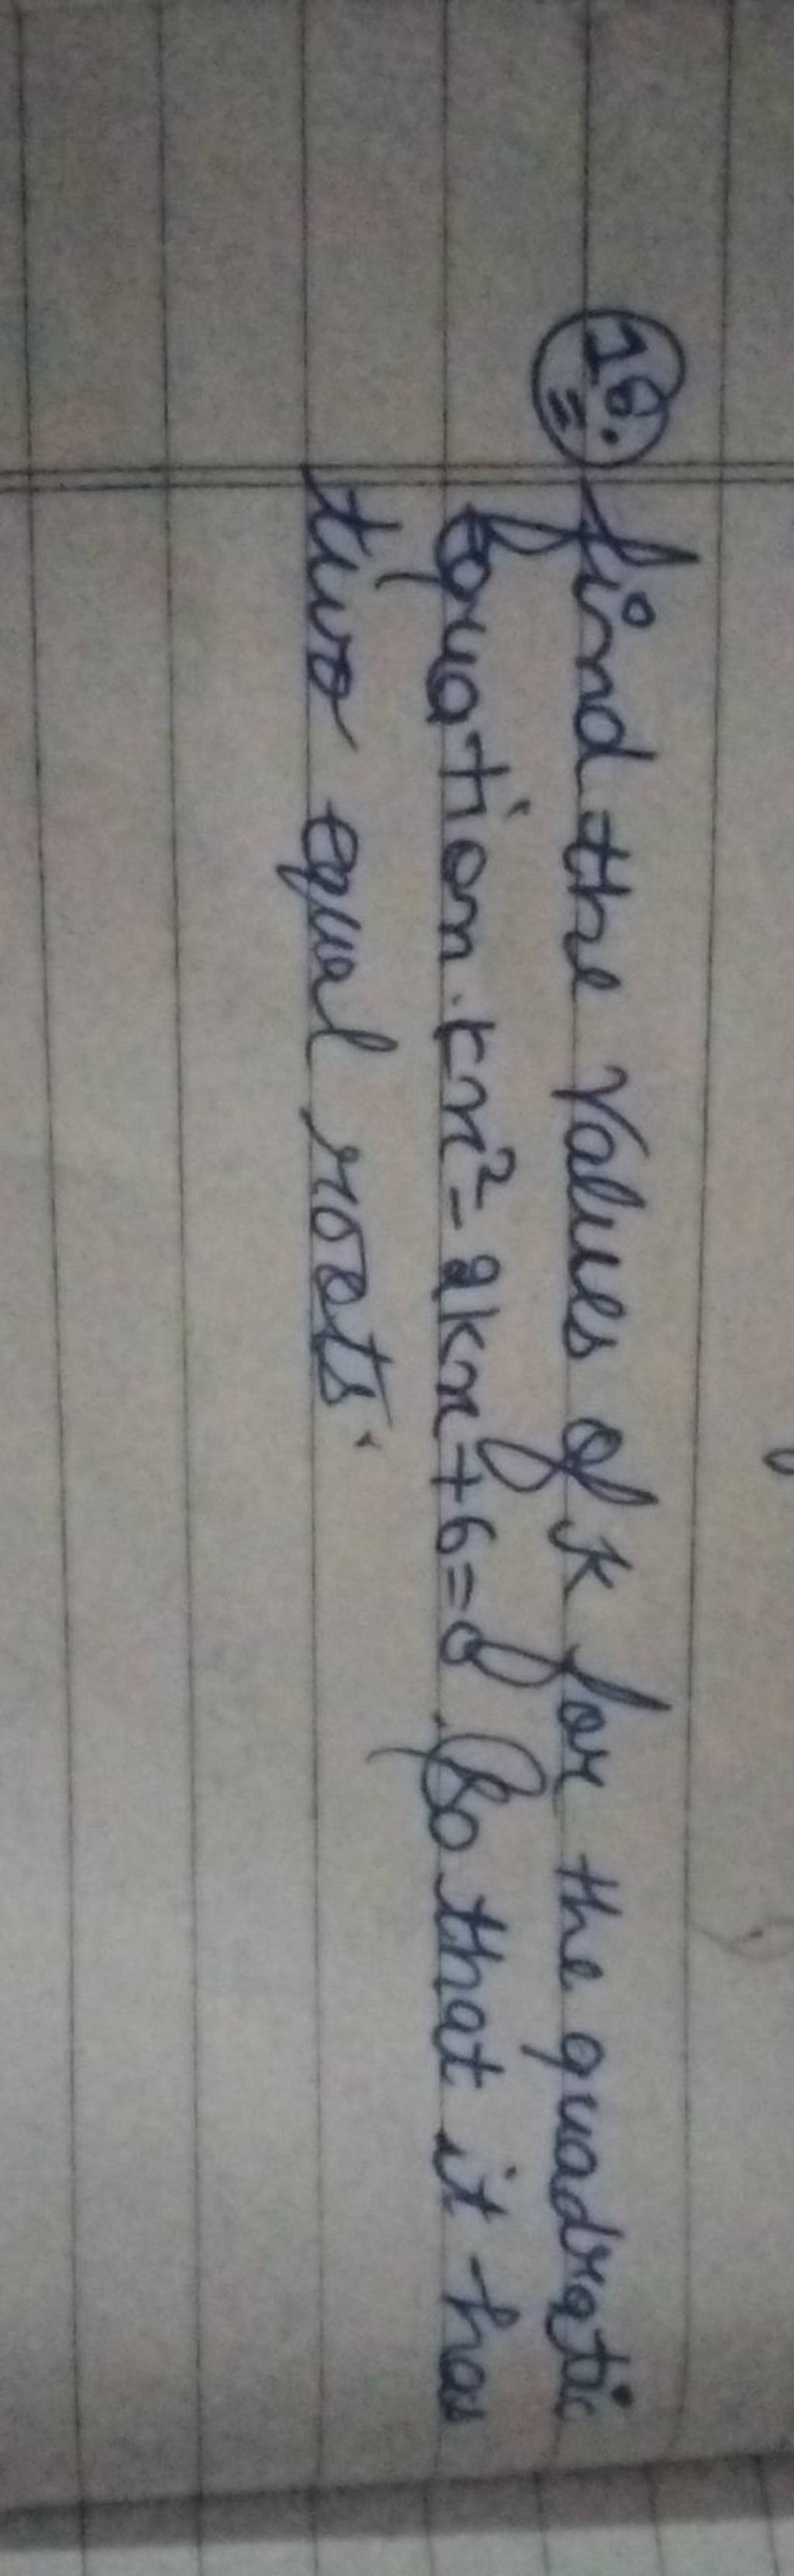 18. find the values of k for the quadratic
Equation. kx² - 2kx + 6 = 0. So that it has
two equal roots.